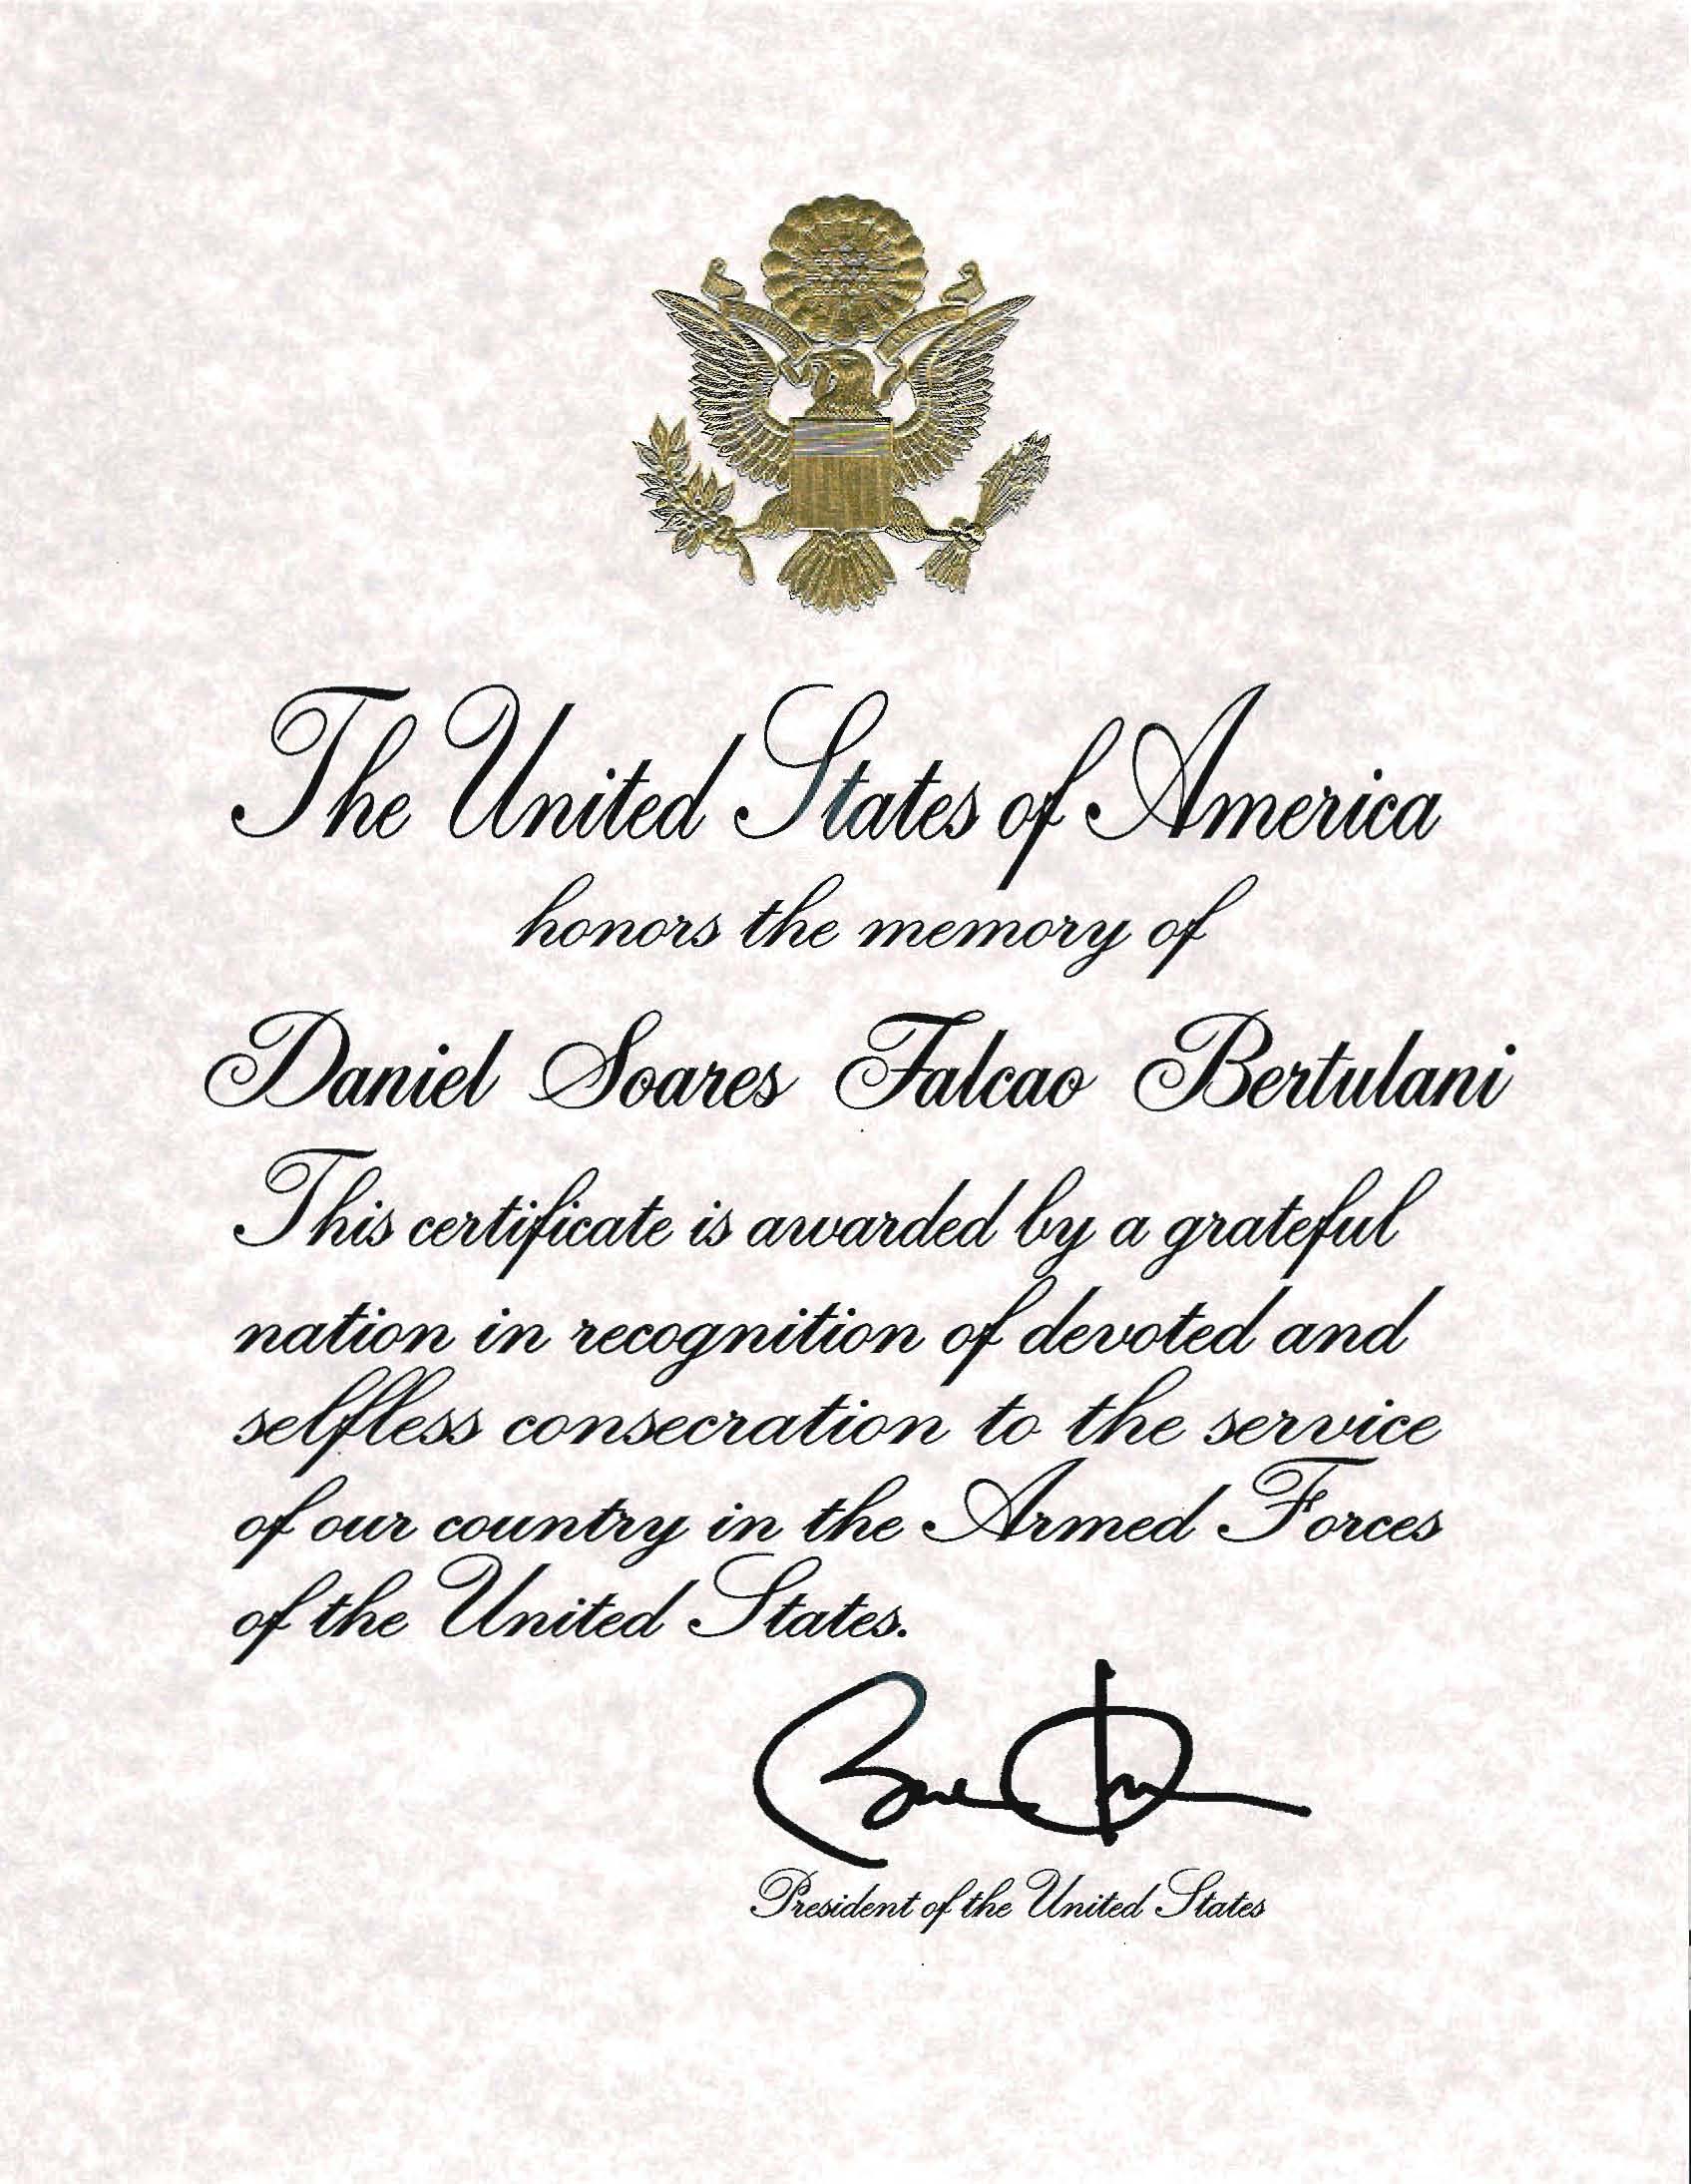 The United States of America
honors the memory of
Daniel Soares Falcao Bertulani
This certificate is awarded by a grateful
nation in recognition of devoted and
selfless consecration to the service
of our country in the Armed Forces
of the United States.
President of the United States